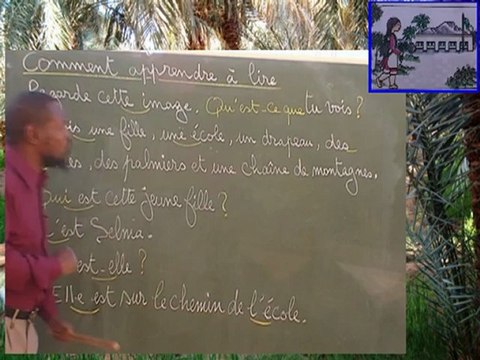 Comment apprendre à lire
Regarde cette image. Qu'est-ce que tu vois?
une fille, une école, un drapeau, des
des palmiers et une chaîne de montagnes.
Qui est cette jeune fille?
C'est Selma.
est-elle?
Elle est sur le chemin de l'école.